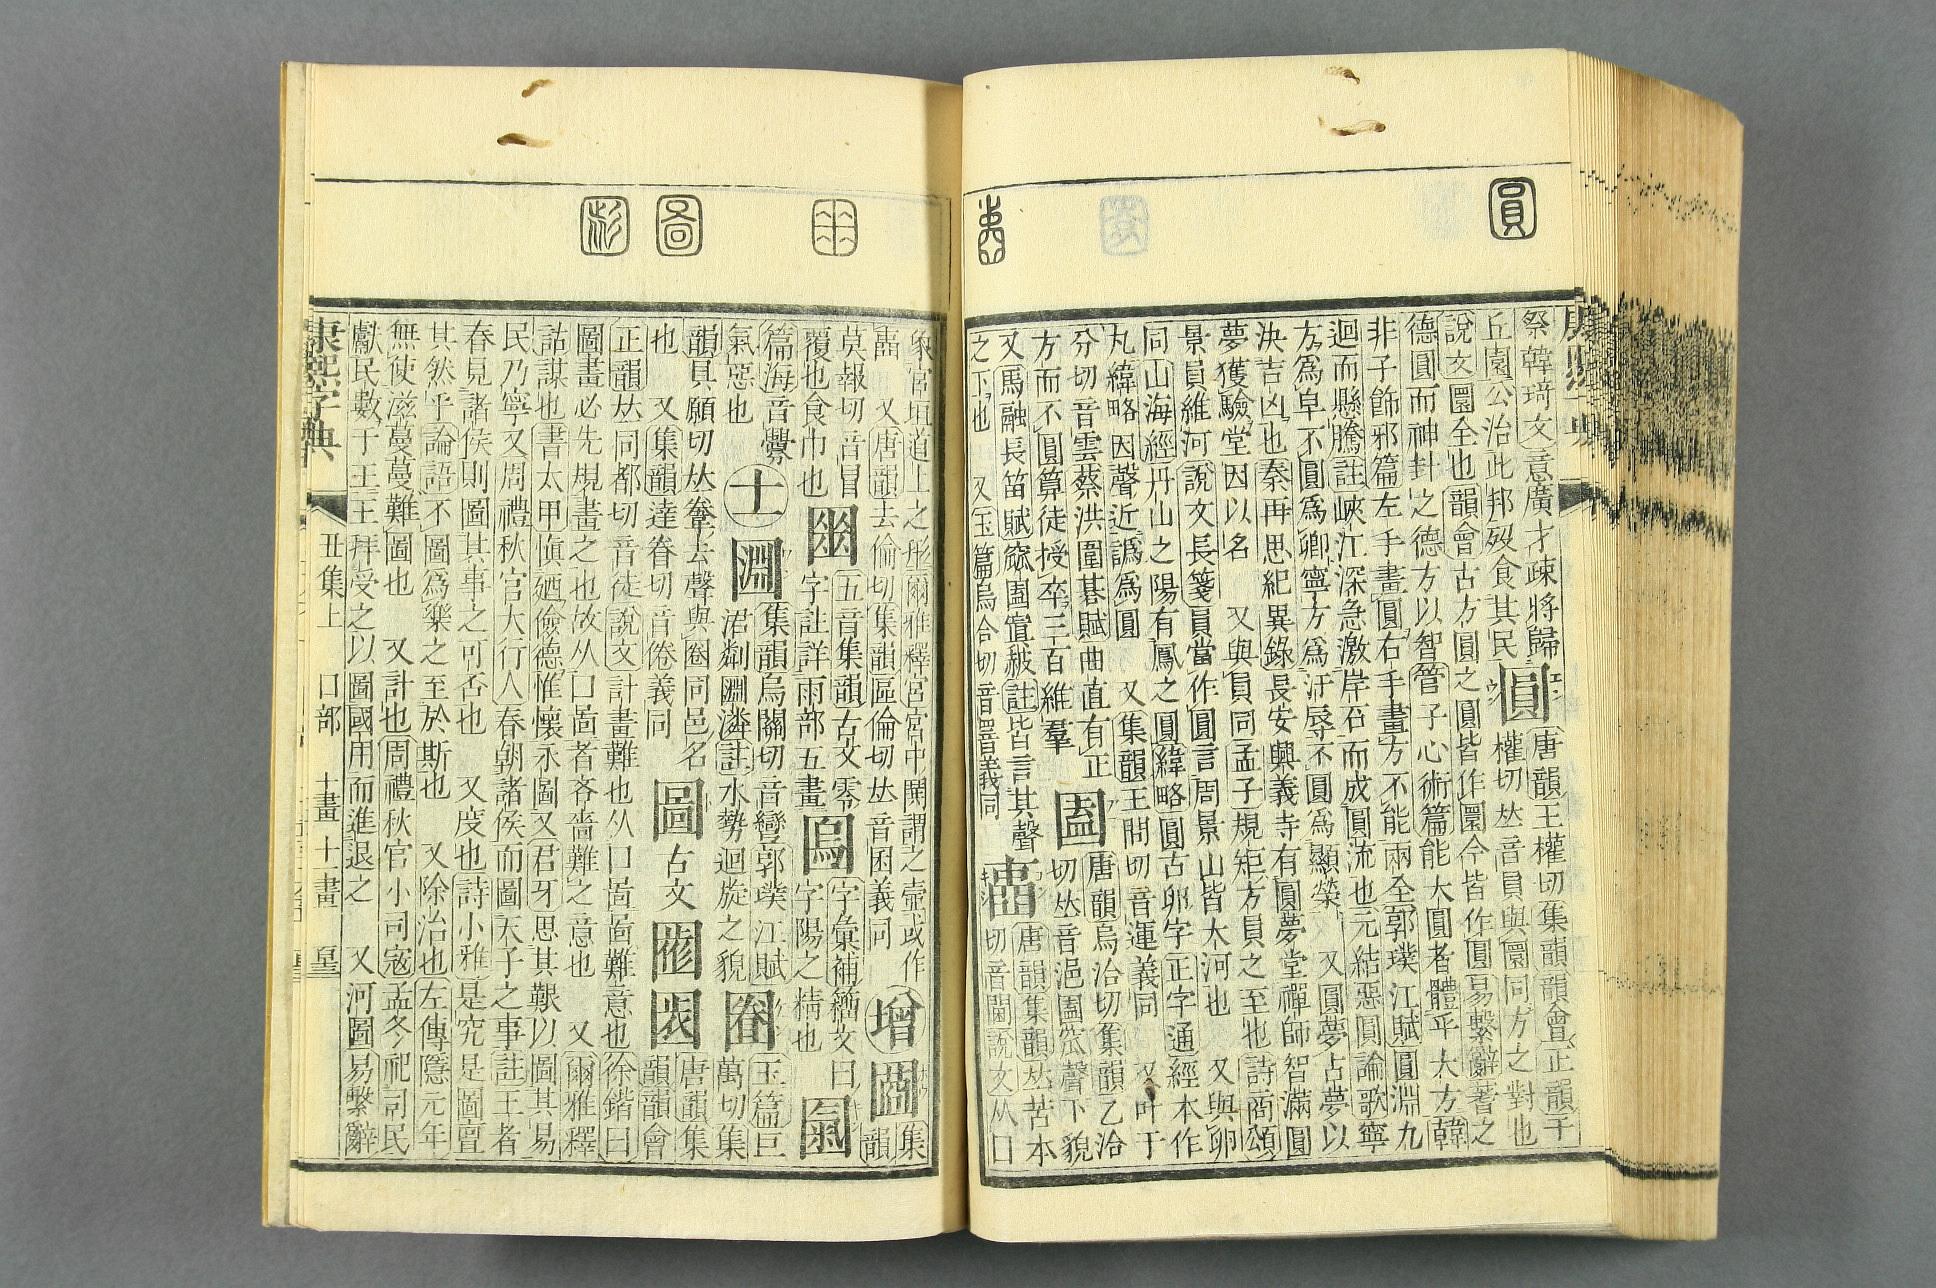 圓
𡈁
康熙字典
祭韓琦文意廣才疎將歸
丘園公治此邦歿食其民
圓
唐韻王權切集韻韻會正韻于
權切𠀤音員與圜同方之對也
說文圜全也韻會古方圓之圓皆作圜今皆作圓易繫辭蓍之
德圓而神卦之德方以智管子心術篇能大圓者體乎大方韓
非子飾邪篇左手畫圓右手畫方不能兩全郭璞江賦圓淵九
迴而懸騰註峽江深急激岸石而成圓流也元結惡圓論歌寧
方爲皁不圓爲卿寧方爲汙辱不圓爲顯榮 又圓夢占夢以
決吉凶也秦再思紀異錄長安興義寺有圓夢堂禪師智滿圓
夢獲驗堂因以名 又與員同孟子規矩方員之至也詩商頌
景員維河說文長箋員當作圓言周景山皆大河也 又與卵
同山海經丹山之陽有鳳之圓緯略圓古卵字正字通經本作
丸緯略因聲近譌爲圓 又集韻王問切音運義同 又叶于
分切音雲蔡洪圍棊賦曲直有正
方而不圓算徒授卒三百維羣
唐韻烏洽切集韻乙洽
切𠀤音浥 笯聲下貌
又馬融長笛賦 註皆言其聲
之下也 又玉篇烏合切音 義同
𡈁
唐韻集韻𠀤苦本
切音閫說文从口
象宮垣道上之形爾雅釋宮宮中閧謂之壼或作
𡈁 又唐韻去倫切集韻區倫切𠀤音囷義同
增
集
韻
莫報切音冒
覆也食巾也
五音集韻古文零
字註詳雨部五畫
字彙補籀文日
字陽之精也
篇海音釁
氣惡也
十
集韻烏關切音彎郭璞江賦
泿粼 潾註水勢迴旋之貌
圈
玉篇巨
萬切集
韻具願切𠀤 去聲與圈同邑名
也 又集韻逵眷切音倦義同
圖
古文
唐韻集
韻韻會
正韻𠀤同都切音徒說文計畫難也从口啚啚難意也徐鍇曰
圖畫必先規畫之也故从口啚者吝嗇難之意也 又爾雅釋
詁謀也書太甲愼乃儉德惟懷永圖又君牙思其艱以圖其易
民乃寧又周禮秋官大行人春朝諸侯而圖天子之事註王者
春見諸侯則圖其事之可否也 又度也詩小雅是究是圖亶
其然乎論語不圖爲樂之至於斯也 又除治也左傳隱元年
無使滋蔓蔓難圖也 又計也周禮秋官小司寇孟冬祀司民
獻民數于王王拜受之以圖國用而進退之 又河圖易繫辭
康熙字典
丑集上 口部 十畫 十一畫